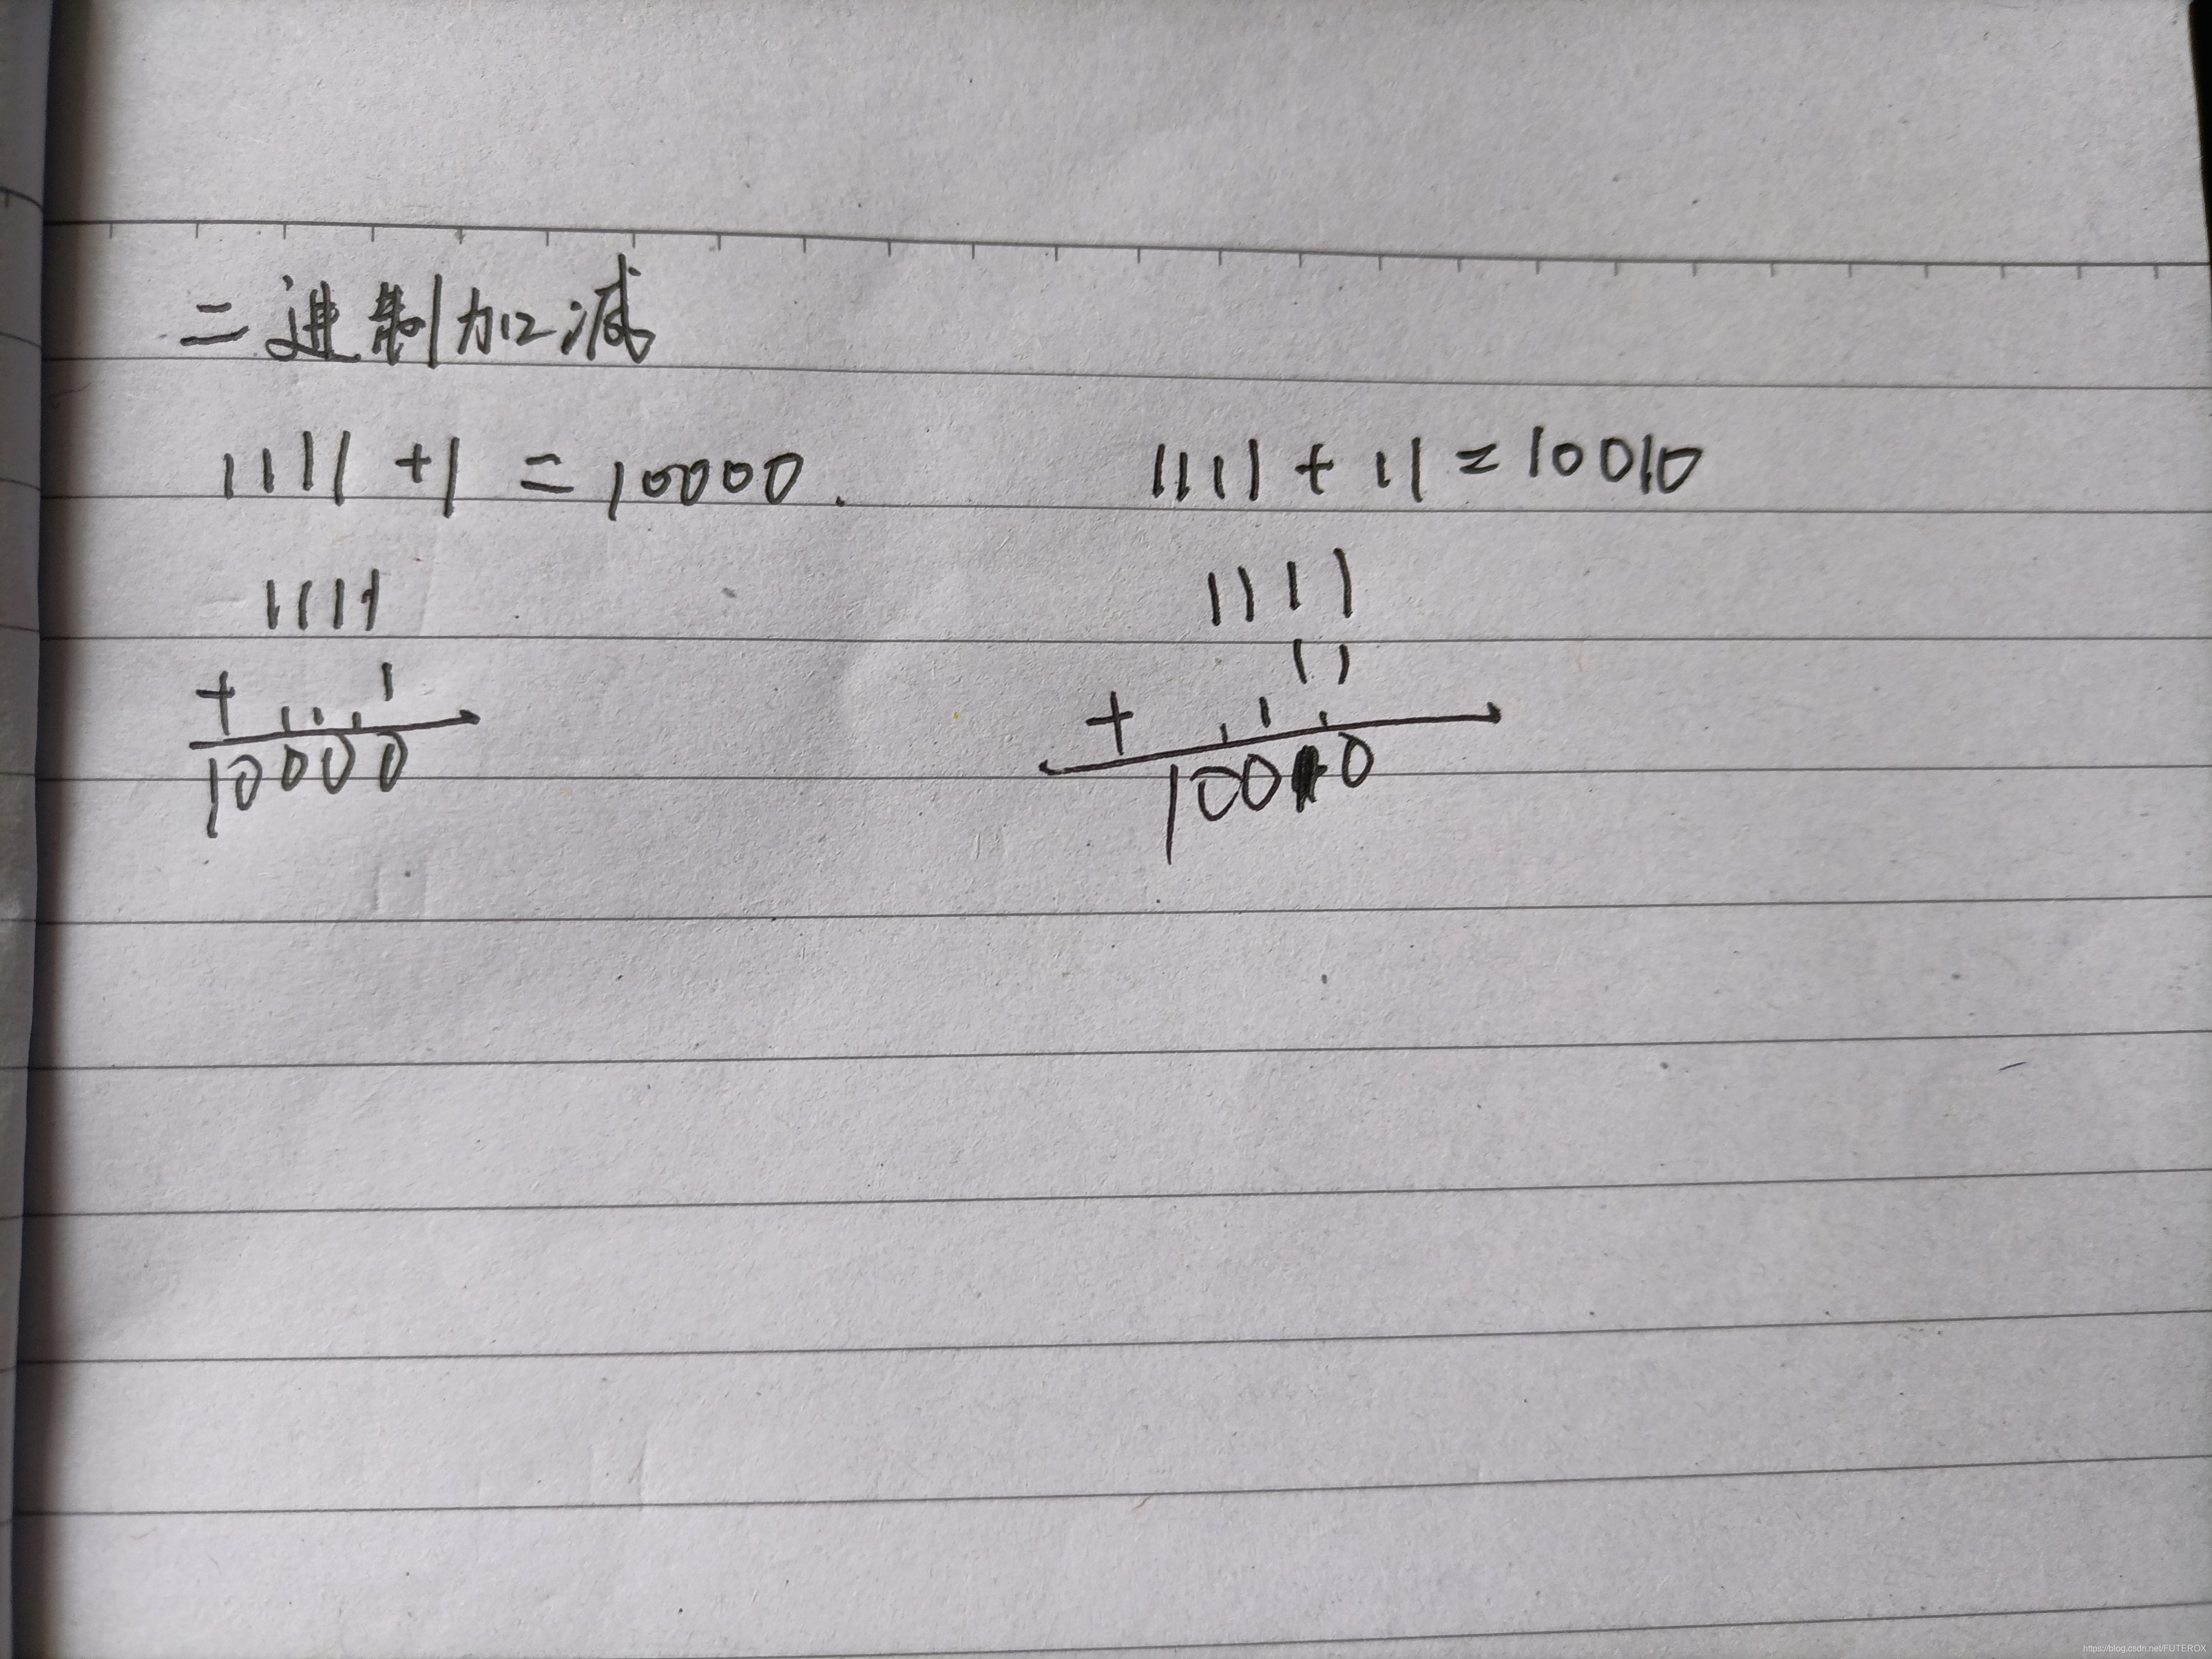 二进制加减
1111 +1 = 10000.
1111 + 11 = 10010
1111
+ 1
10000
1111
11
+
10010
https://blog.csdn.net/FUTEROX